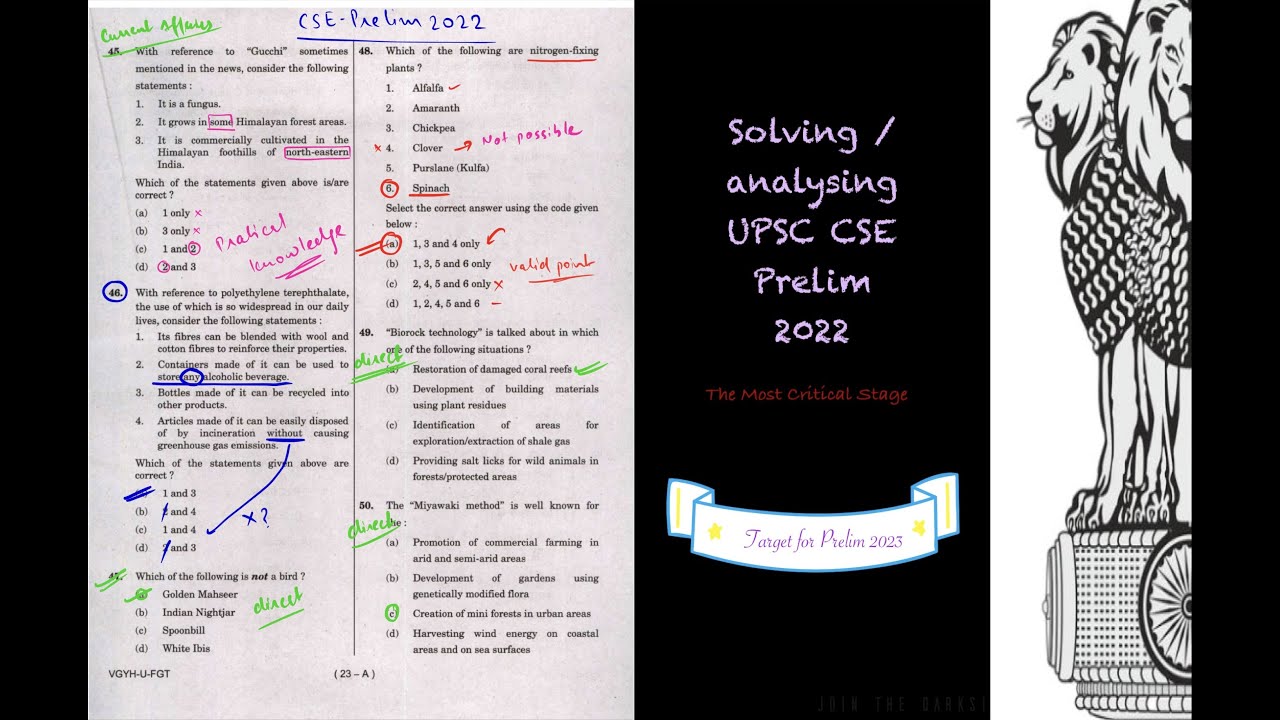 Current Affairs
CSE-Prelim 2022
45. With reference to “Gucchi” sometimes
mentioned in the news, consider the following
statements :
1. It is a fungus.
2. It grows in some Himalayan forest areas.
3. It is commercially cultivated in the
Himalayan foothills of north-eastern
India.
Which of the statements given above is/are
correct ?
(a) 1 only x
(b) 3 only x
(c) 1 and 2
(d) 2 and 3
Pratical
knowledge
46. With reference to polyethylene terephthalate,
the use of which is so widespread in our daily
lives, consider the following statements :
1. Its fibres can be blended with wool and
cotton fibres to reinforce their properties.
2. Containers made of it can be used to
store any alcoholic beverage.
3. Bottles made of it can be recycled into
other products.
4. Articles made of it can be easily disposed
of by incineration without causing
greenhouse gas emissions.
Which of the statements given above are
correct ?
1 and 3
(b) 2 and 4
(c) 1 and 4
(d) 2 and 3
x?
47. Which of the following is not a bird ?
(a) Golden Mahseer
(b) Indian Nightjar
(c) Spoonbill
(d) White Ibis
direct
VGYH-U-FGT
( 23 – A )
48. Which of the following are nitrogen-fixing
plants ?
1. Alfalfa
2. Amaranth
3. Chickpea
x 4. Clover → Not possible
5. Purslane (Kulfa)
6. Spinach
Select the correct answer using the code given
below :
(a) 1, 3 and 4 only
(b) 1, 3, 5 and 6 only
(c) 2, 4, 5 and 6 only x
(d) 1, 2, 4, 5 and 6
valid point
49. “Biorock technology” is talked about in which
one of the following situations ?
direct
(a) Restoration of damaged coral reefs
(b) Development of building materials
using plant residues
(c) Identification of areas for
exploration/extraction of shale gas
(d) Providing salt licks for wild animals in
forests/protected areas
50. The “Miyawaki method” is well known for
the :
direct
(a) Promotion of commercial farming in
arid and semi-arid areas
(b) Development of gardens using
genetically modified flora
(c) Creation of mini forests in urban areas
(d) Harvesting wind energy on coastal
areas and on sea surfaces
Solving /
analysing
UPSC CSE
Prelim
2022
The Most Critical Stage
Target for Prelim 2023
JOIN THE DARKSI